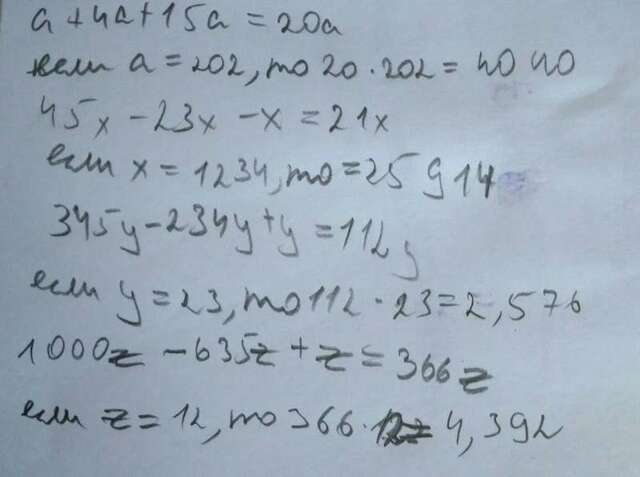 a + 4a + 15a = 20a
если a = 202, то 20 · 202 = 40 40
45x - 23x - x = 21x
если x = 1234, то = 25 914
345y - 234y + y = 112y
если y = 23, то 112 · 23 = 2,576
1000z - 635z + z = 366z
если z = 12, то 366 · 12 = 4,392